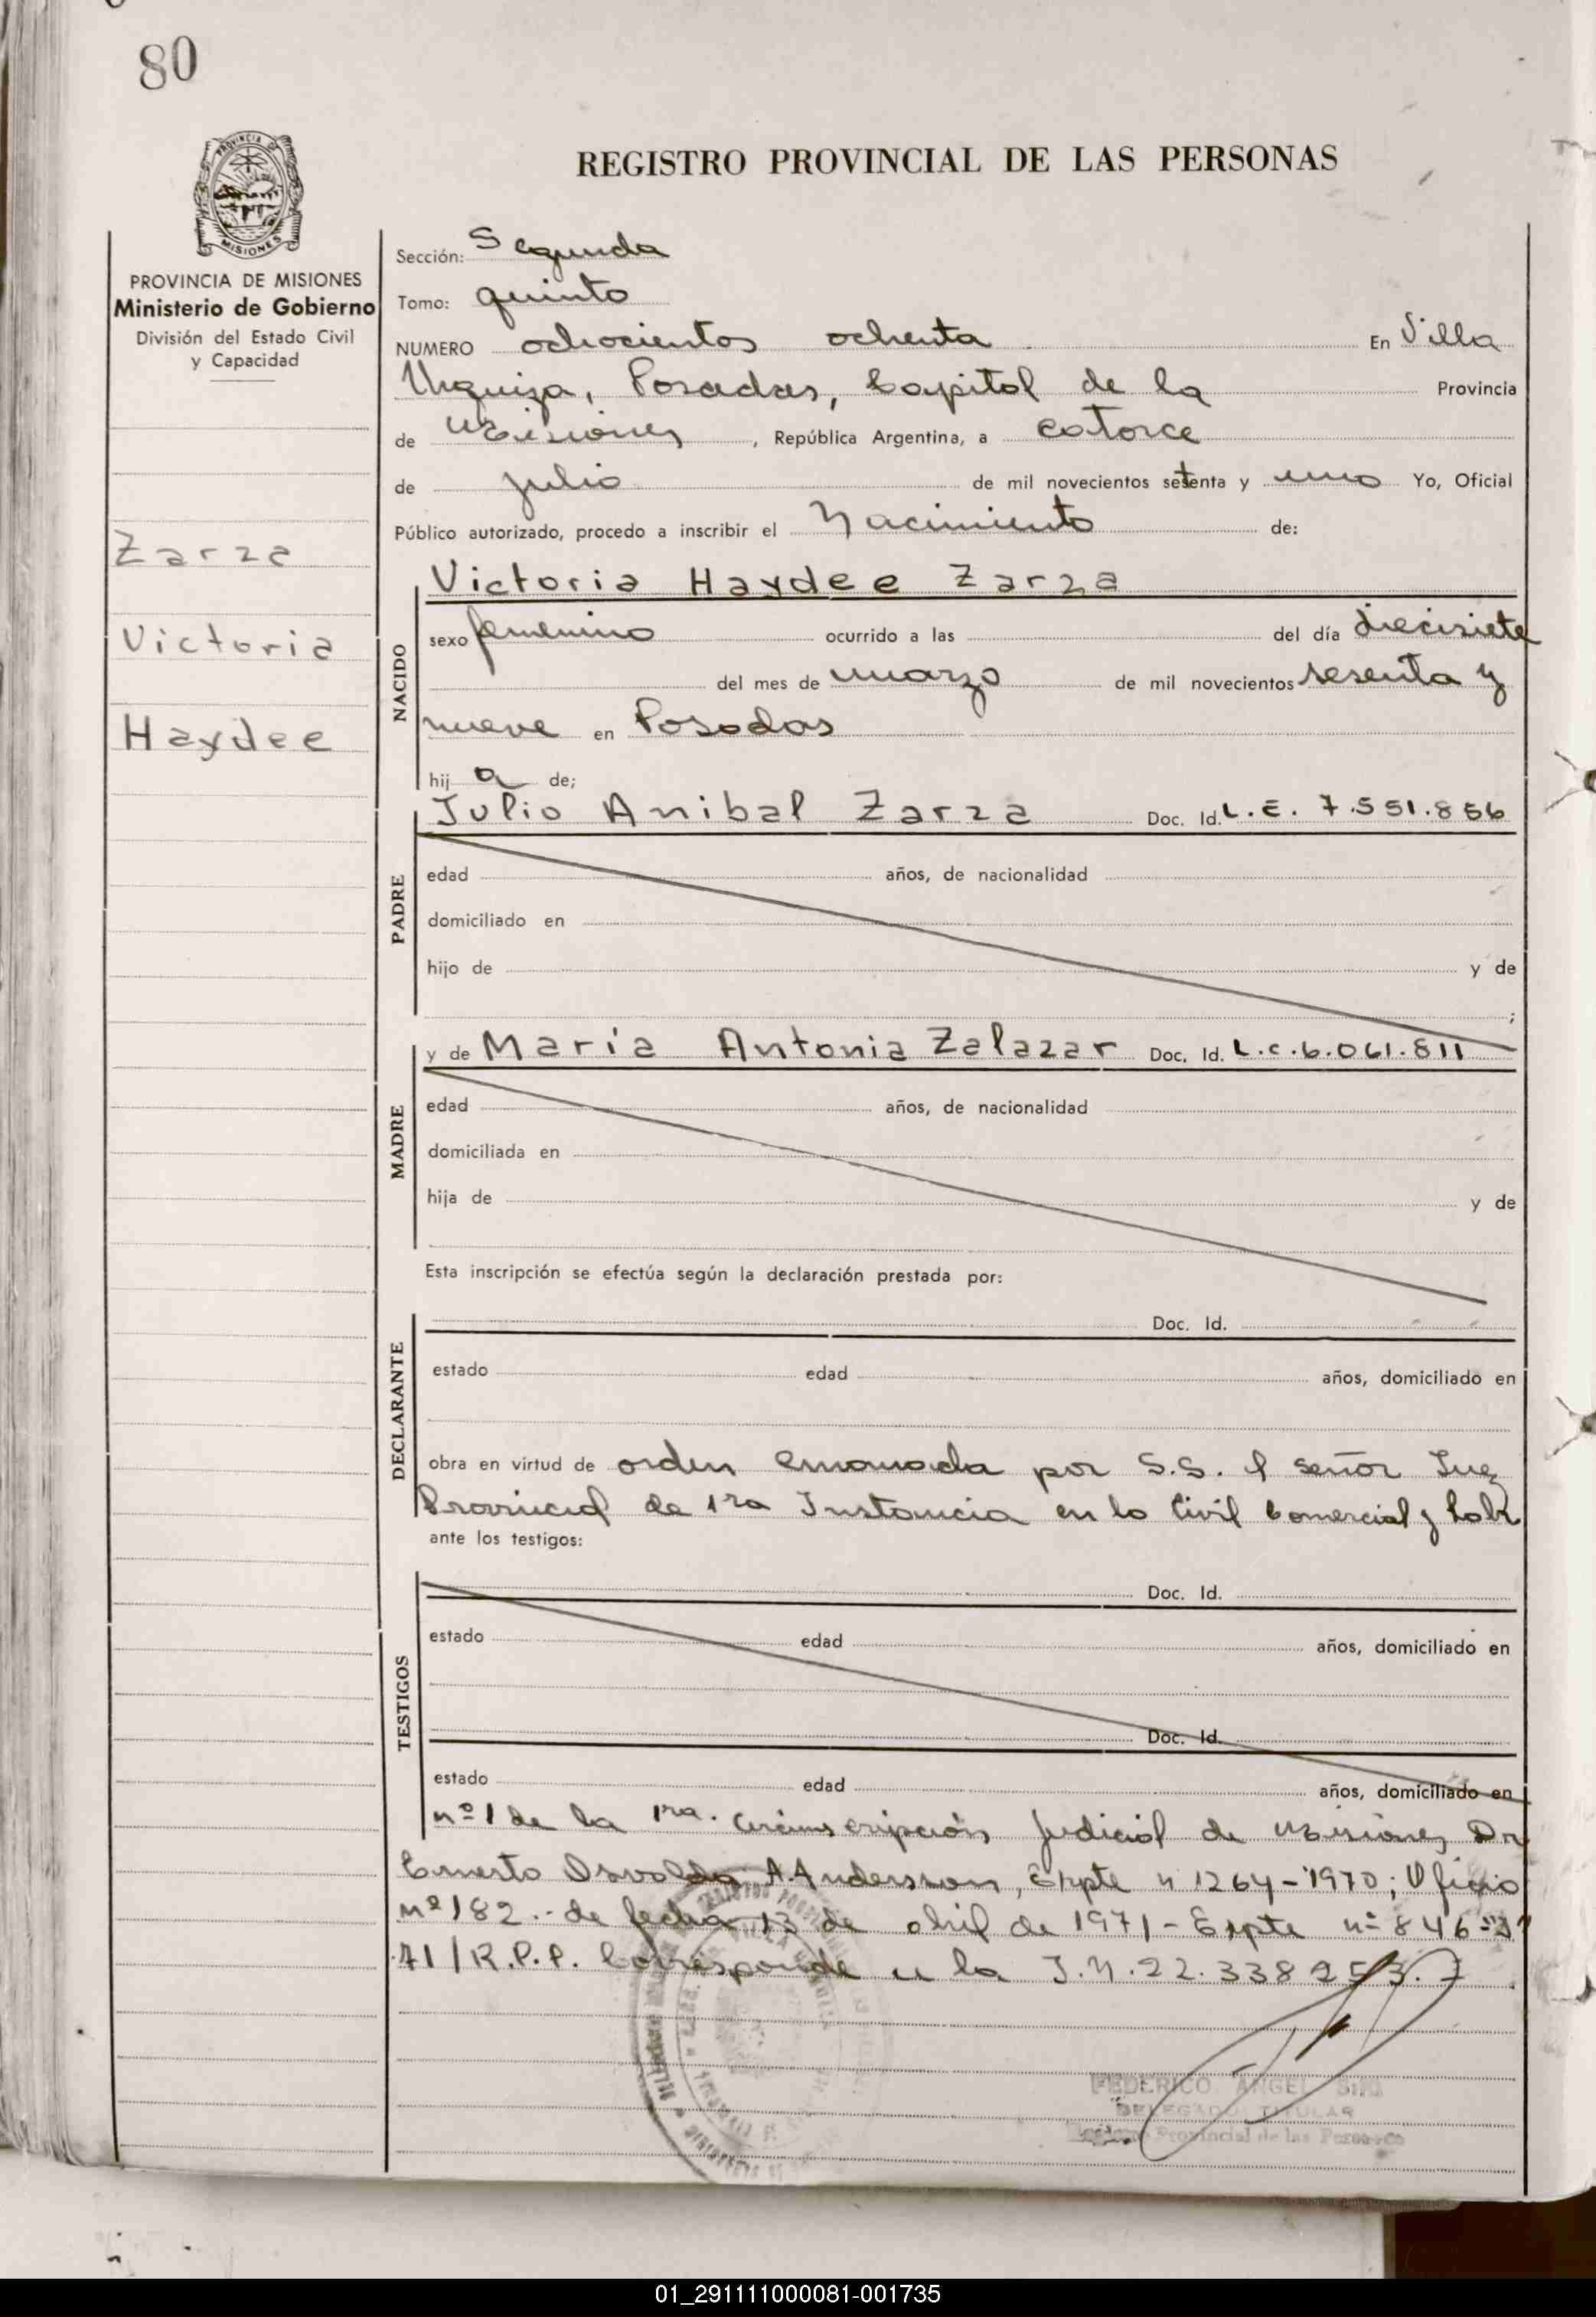 80
REGISTRO PROVINCIAL DE LAS PERSONAS
PROVINCIA DE MISIONES
Ministerio de Gobierno
División del Estado Civil
y Capacidad
Zarza
Victoria
Haydee
Sección: Segunda
Tomo: quinto
NUMERO ochocientos ochenta En Villa
Urquiza, Posadas, Capital de la Provincia
de Misiones, República Argentina, a catorce
de julio de mil novecientos setenta y uno Yo, Oficial
Público autorizado, procedo a inscribir el Nacimiento de:
NACIDO
Victoria Haydee Zarza
sexo femenino ocurrido a las del día diecisiete
del mes de marzo de mil novecientos sesenta y
nueve en Posadas
hija de;
PADRE
Julio Anibal Zarza Doc. Id. L.E. 7.551.856
edad años, de nacionalidad
domiciliado en
hijo de y de
;
MADRE
y de María Antonia Zalazar Doc. Id. L.C. 6.061.811
edad años, de nacionalidad
domiciliada en
hija de y de
Esta inscripción se efectúa según la declaración prestada por:
DECLARANTE
Doc. Id.
estado edad años, domiciliado en
obra en virtud de orden emanada por S.S. el señor Juez
Provincial de 1ra Instancia en lo Civil Comercial y Lab
ante los testigos:
TESTIGOS
Doc. Id.
estado edad años, domiciliado en
Doc. Id.
estado edad años, domiciliado en
nº 1 de la 1ra. Circunscripción Judicial de Misiones Dr
Ernesto Osvaldo A. Andersson, Expte n 1264-1970; Oficio
nº 182.- de fecha 13 de abril de 1971 - Expte nº 846
71/R.P.P. Corresponde a la I.N. 22.338.253.7
FEDERICO ANGEL
DELEGADO TITULAR
Provincial de las Personas
01_291111000081-001735